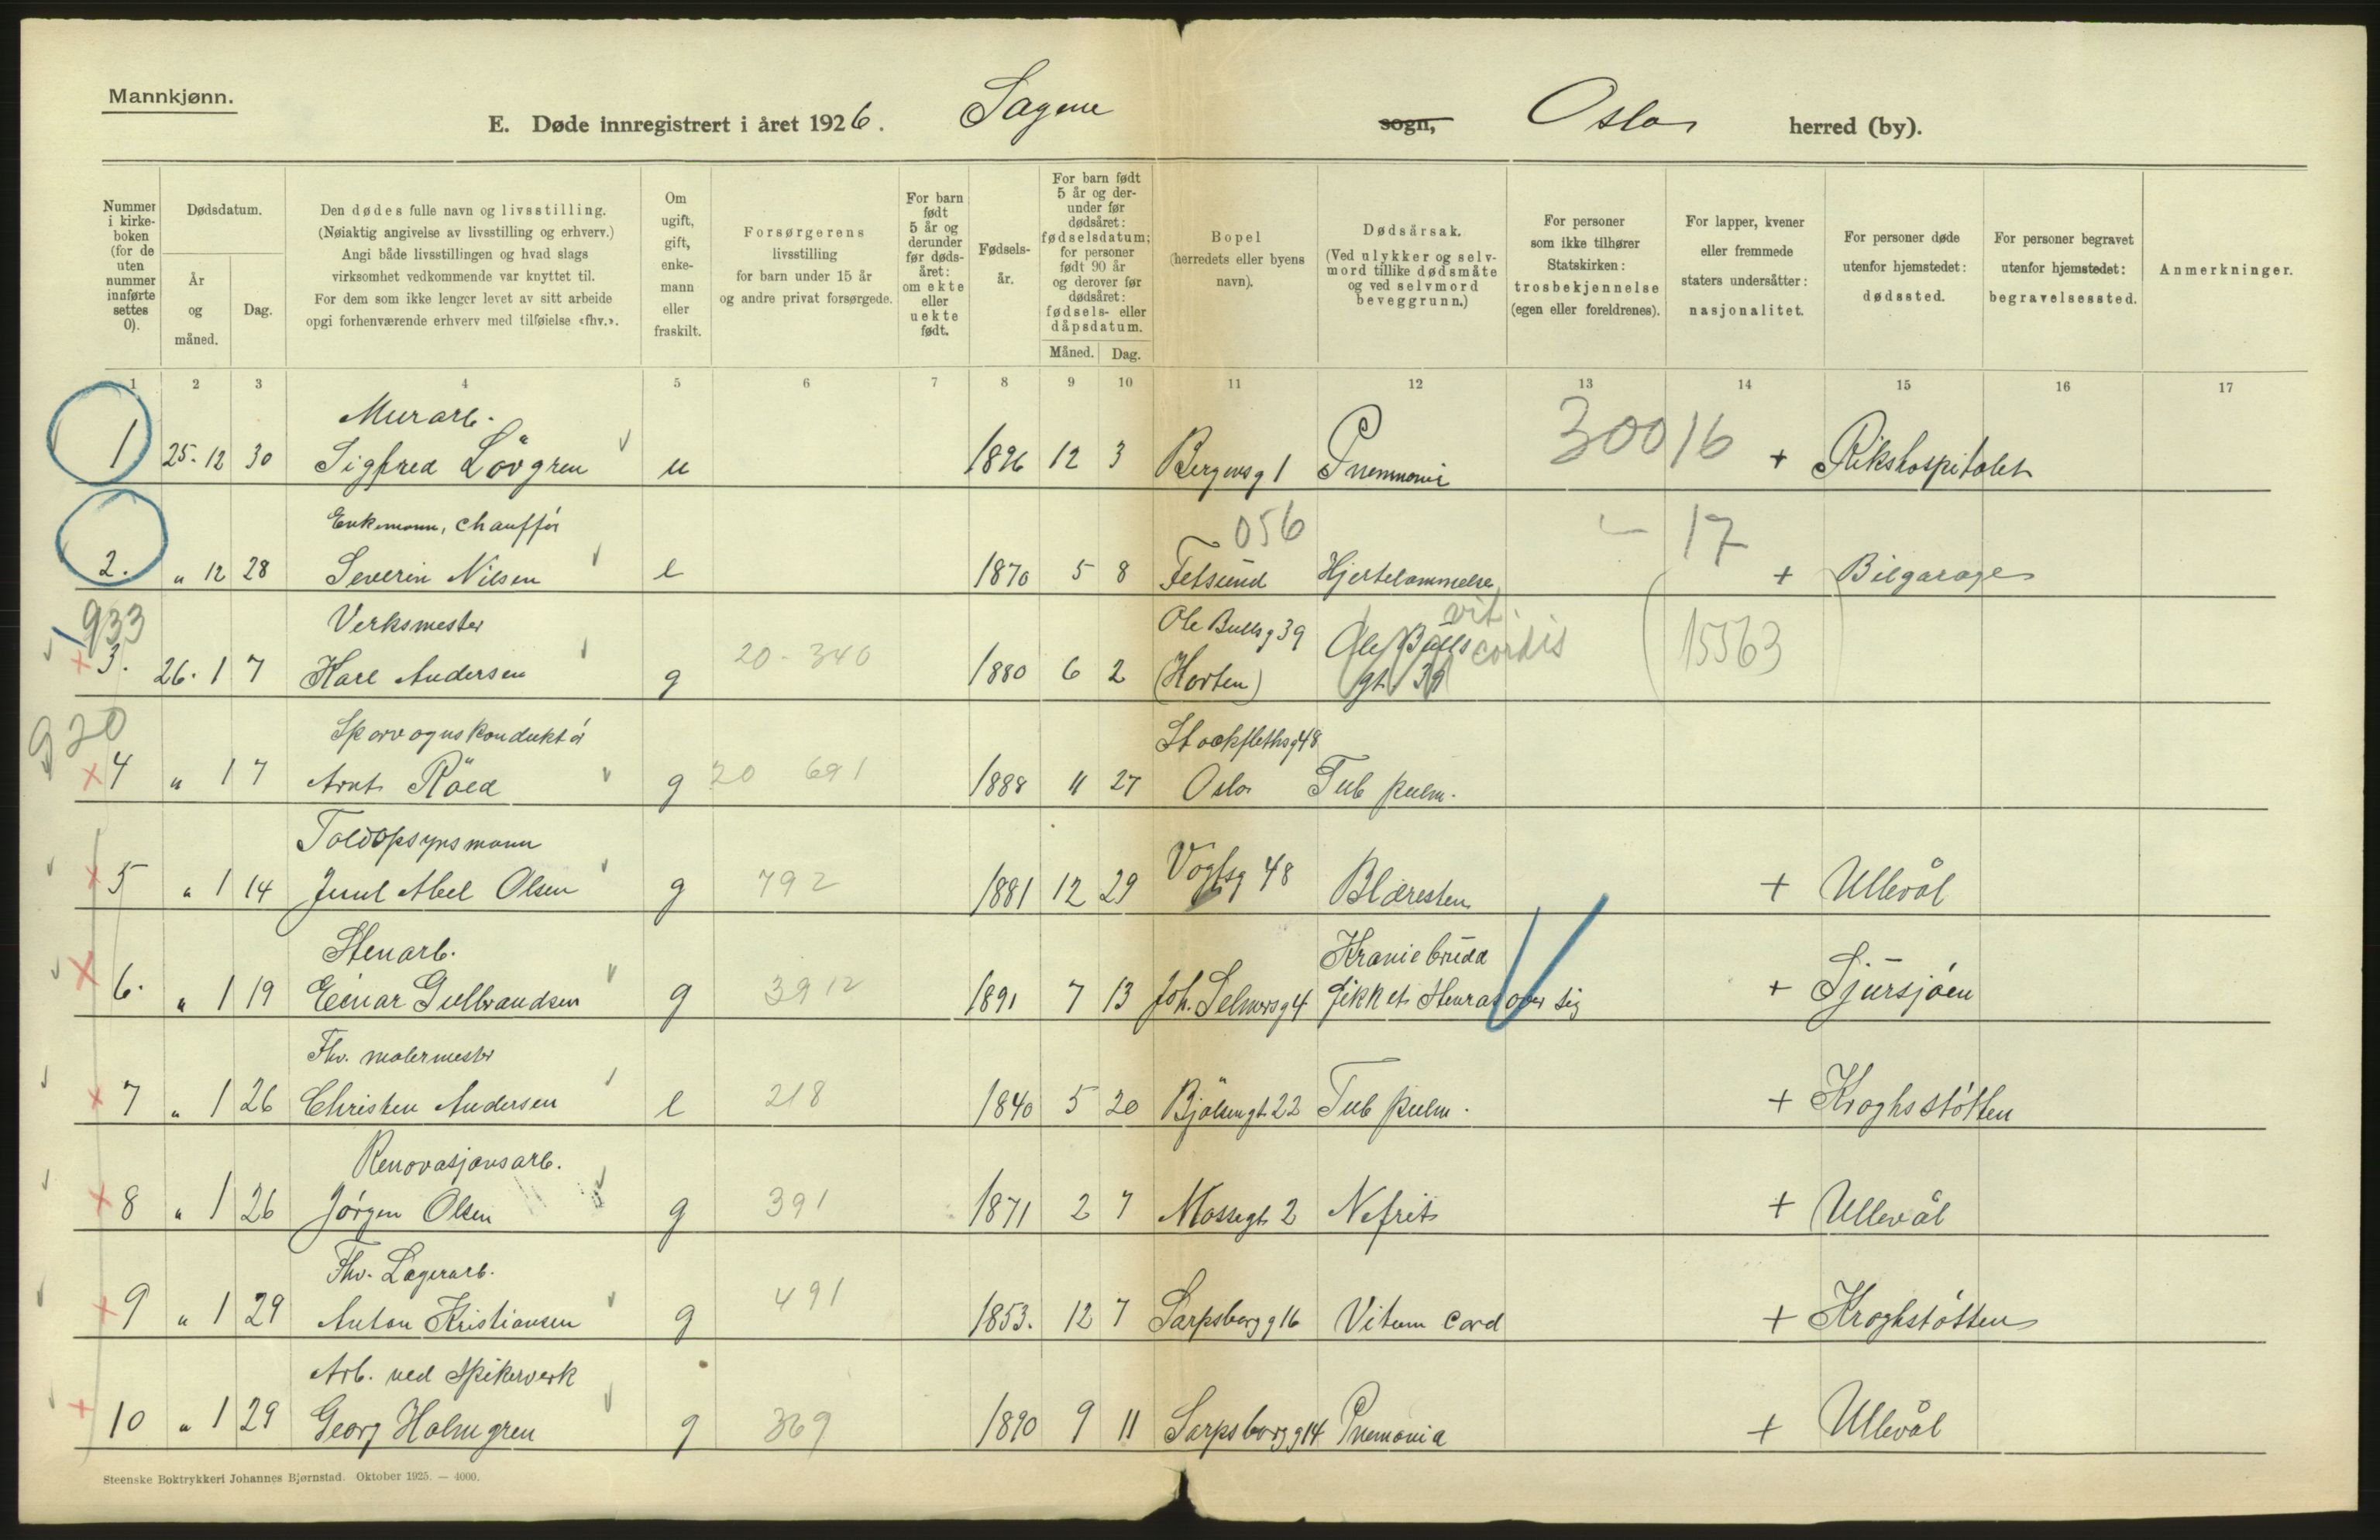 Mannkjønn.
E. Døde innregistrert i året 1926. Sagene sogn, Oslo herred (by).
Nummer i kirke-boken (for de uten nummer innførte settes 0).
Dødsdatum.
År og måned.
Dag.
Den dødes fulle navn og livsstilling.
(Nøiaktig angivelse av livsstilling og erhverv.)
Angi både livsstillingen og hvad slags
virksomhet vedkommende var knyttet til.
For dem som ikke lenger levet av sitt arbeide
opgi forhenværende erhverv med tilføielse «fhv.».
Om ugift, gift, enke-mann eller fraskilt.
Forsørgerens livsstilling for barn under 15 år og andre privat forsørgede.
For barn født 5 år og derunder før døds-året: om ekte eller uekte født.
Fødsels-år.
For barn født 5 år og der-under før dødsåret: fødselsdatum; for personer født 90 år og derover før dødsåret: fødsels- eller dåpsdatum.
Måned. Dag.
Bopel (herredets eller byens navn).
Dødsårsak. (Ved ulykker og selv-mord tillike dødsmåte og ved selvmord beveggrunn.)
For personer som ikke tilhører Statskirken: trosbekjennelse (egen eller foreldrenes).
For lapper, kvener eller fremmede staters undersåtter: nasjonalitet.
For personer døde utenfor hjemstedet: dødssted.
For personer begravet utenfor hjemstedet: begravelsessted.
Anmerkninger.
1 2 3 4 5 6 7 8 9 10 11 12 13 14 15 16 17
Murarb.
1 25-12 30 Sigfred Lövgren u 1896 12 3 Bergensg 1 Pnemmoni 30016 + Rikshospitalet
Enkemann, chauffór 056
2. " 12 28 Severin Nilsen e 1870 5 8 Fetsund Hjertelammelse 17 + Bilgarage
933 Verksmester Ole Bullsg 39 vit.
3. 26-1 7 Karl Andersen 20-340 g 1880 6 2 (Horten) Ole Bulls gt. 39 cordis 15563
920 Sporvognskonduktór Stockflethsg 48
4 " 1 7 Arnt Röed g 20 691 1888 11 27 Oslo Tub pulm.
Toldopsynsmann
5 " 1 14 Juul Abel Olsen g 792 1881 12 29 Vogtsg 48 Blæresten + Ullevål
Stenarb. Kraniebrudd
6. " 1 19 Einar Gulbrandsen g 3912 1891 7 13 Joh. Selmersg 4 fikk et stenras over sig + Gjersjóen
Fhv. malermester
7 " 1 26 Christen Andersen e 218 1840 5 20 Bjölsengt 22 Tub pulm. + Kroghsstótten
Renovasjonsarb.
8 " 1 26 Jórgen Olsen g 391 1871 2 7 Mossegt 2 Nefrit + Ullevål
Fhv. Lagerarb.
9 " 1 29 Anton Kristiansen g 491 1853. 12 7 Sarpsborg g 16 Vitium Cord + Kroghstótten
Arb. ved Spikerverk
10 " 1 29 Georg Holmgren g 369 1890 9 11 Sarpsborg g 14 Pnemonia + Ullevål
Steenske Boktrykkeri Johannes Bjørnstad. Oktober 1925. — 4000.